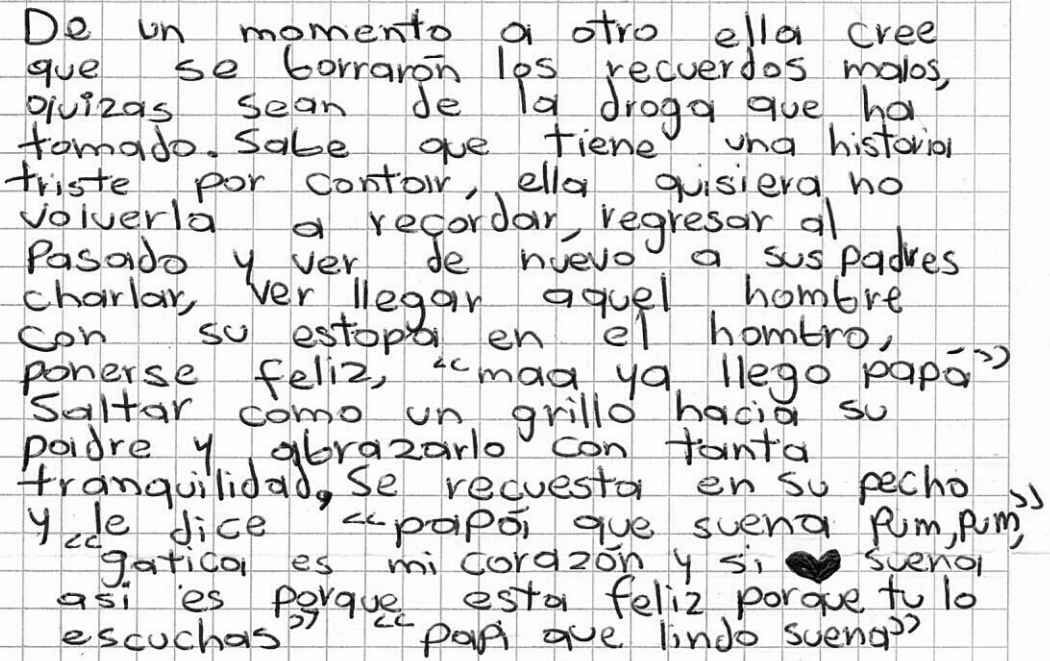 De un momento a otro ella cree
que se borrarón los recuerdos malos,
quizas sean de la droga que ha
tomado. Sabe que tiene una historia
triste por contar, ella quisiera no
volverla a recordar, regresar al
Pasado y ver de nuevo a sus padres
charlar, ver llegar aquel hombre
con su estopa en el hombro,
ponerse feliz, “maa ya llego papá”
Saltar como un grillo hacia su
padre y abrazarlo con tanta
tranquilidad, Se recuesta en su pecho
y le dice “papá, que suena Pum, Pum,”
“gatica es mi corazón y si ♥ suena
asi es porque esta feliz porque tu lo
escuchas” “papi que lindo suena”